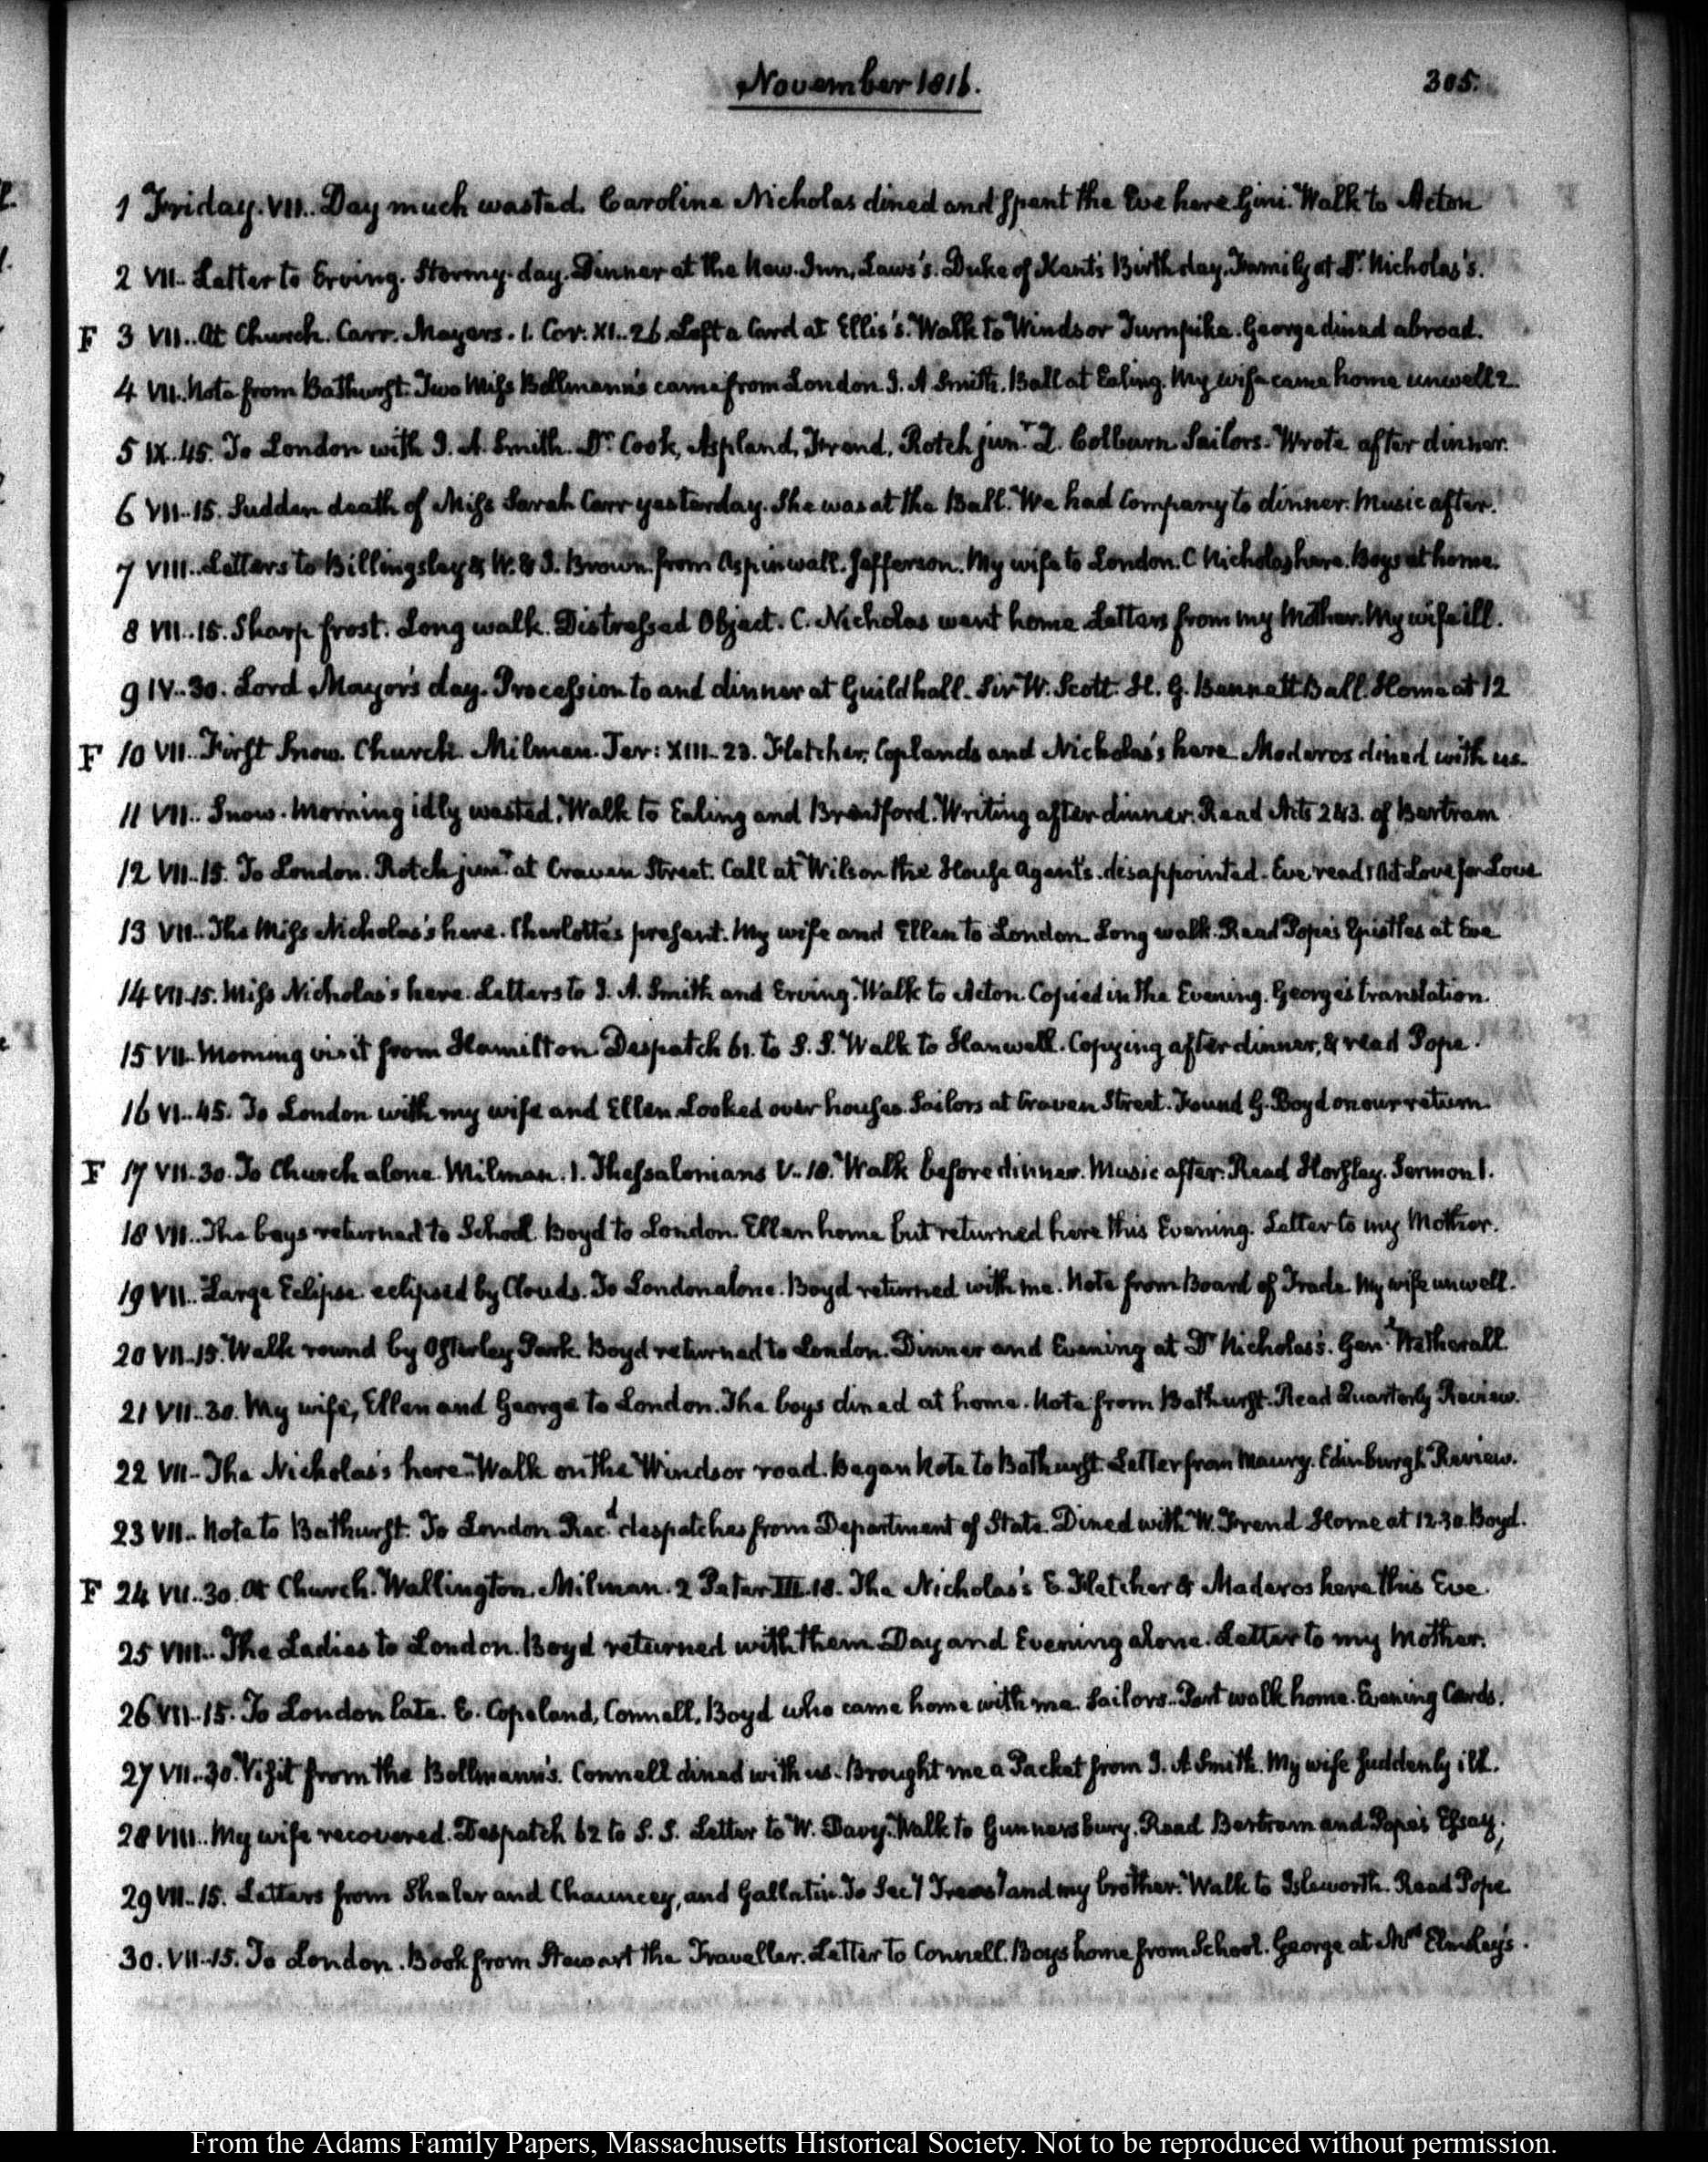 November 1816.
305.
1 Friday. VII.. Day much wasted. Caroline Nicholas dined and spent the Eve here Gini. Walk to Acton
2 VII.. Letter to Erving. Stormy day. Dinner at the New Inn, Laws's. Duke of Kent's Birth day. Family at Dr. Nicholas's.
F 3 VII.. At Church. Carr. Mayers. 1. Cor. XI..26. Left a Card at Ellis's. Walk to Windsor Turnpike. George dined abroad.
4 VII. Note from Bathurst. Two Miss Bollmann's came from London J. A Smith. Ball at Ealing. My wife came home unwell 2.
5 IX..45. To London with J. A. Smith. Dr. Cook, Aspland, Frend, Rotch junr. Z. Colburn Sailors. Wrote after dinner.
6 VII..15. Sudden death of Miss Sarah Carr yesterday. She was at the Ball. We had Company to dinner. Music after.
7 VIII.. Letters to Billingsley & W. & J. Brown. from Aspinwall. Jefferson. My wife to London. C Nicholas here. Boys at home.
8 VII..15. Sharp frost. Long walk. Distressed Object. C. Nicholas went home. Letters from my Mother. My wife ill.
9 IV..30. Lord Mayor's day. Procession to and dinner at Guildhall. Sir W. Scott. H. G. Bennett Ball. Home at 12
F 10 VII.. First Snow. Church. Milman. Jer: XIII. 23. Fletcher, Coplands and Nicholas's here. Maderos dined with us.
11 VII.. Snow. Morning idly wasted. Walk to Ealing and Brentford. Writing after dinner. Read Acts 2 & 3. of Bertram
12 VII..15. To London. Rotch junr. at Craven Street. Call at Wilson the House Agent's. disappointed. Eve read 1 Act Love for Love
13 VII.. The Miss Nicholas's here. Charlotte's present. My wife and Ellen to London. Long walk. Read Pope's Epistles at Eve
14 VII..15. Miss Nicholas's here. Letters to J. A. Smith and Erving. Walk to Acton. Copied in the Evening. George's translation.
15 VII.. Morning visit from Hamilton. Despatch 61. to S. S. Walk to Hanwell. Copying after dinner, & read Pope.
16 VI..45. To London with my wife and Ellen. Looked over houses. Sailors at Craven Street. Found G. Boyd on our return.
F 17 VII..30. To Church alone. Milman. 1. Thessalonians V..18. Walk before dinner. Music after. Read Horsley. Sermon 1.
18 VII.. The boys returned to School. Boyd to London. Ellen home but returned here this Evening. Letter to my Mother.
19 VII.. Large Eclipse. eclipsed by Clouds. To London alone. Boyd returned with me. Note from Board of Trade. My wife unwell.
20 VII..15. Walk round by Osterley Park. Boyd returned to London. Dinner and Evening at Dr Nicholas's. Genl. Wetherall.
21 VII..30. My wife, Ellen and George to London. The boys dined at home. Note from Bathurst. Read Quarterly Review.
22 VII.. The Nicholas's here. Walk on the Windsor road. Began Note to Bathurst. Letter from Maury. Edinburgh Review.
23 VII.. Note to Bathurst. To London. Recd. despatches from Department of State. Dined with W. Frend. Home at 12.30. Boyd.
F 24 VII..30. At Church. Wallington. Milman. 2 Peter III.18. The Nicholas's E. Fletcher & Maderos here this Eve.
25 VIII.. The Ladies to London. Boyd returned with them. Day and Evening alone. Letter to my Mother.
26 VII..15. To London late. E. Copeland, Connell, Boyd who came home with me. Sailors. Part walk home. Evening Cards.
27 VII..30. Visit from the Bollmann's. Connell dined with us. Brought me a Packet from J. A Smith. My wife suddenly ill.
28 VIII.. My wife recovered. Despatch 62 to S. S. Letter to W. Davy. Walk to Gunnersbury. Read Bertram and Pope's Essay.
29 VII..15. Letters from Shaler and Chauncey, and Gallatin. To Secy Treasy and my brother. Walk to Isleworth. Read Pope
30. VII..15. To London. Book from Stewart the Traveller. Letter to Connell. Boys home from School. George at Mrs Elmsley's.
From the Adams Family Papers, Massachusetts Historical Society. Not to be reproduced without permission.